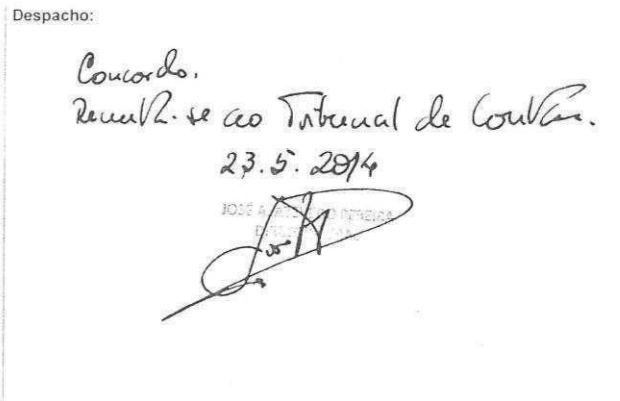 Despacho:
Concordo.
Remeta-se ao Tribunal de Contas.
23.5.2014
JOSÉ A
PEREIRA